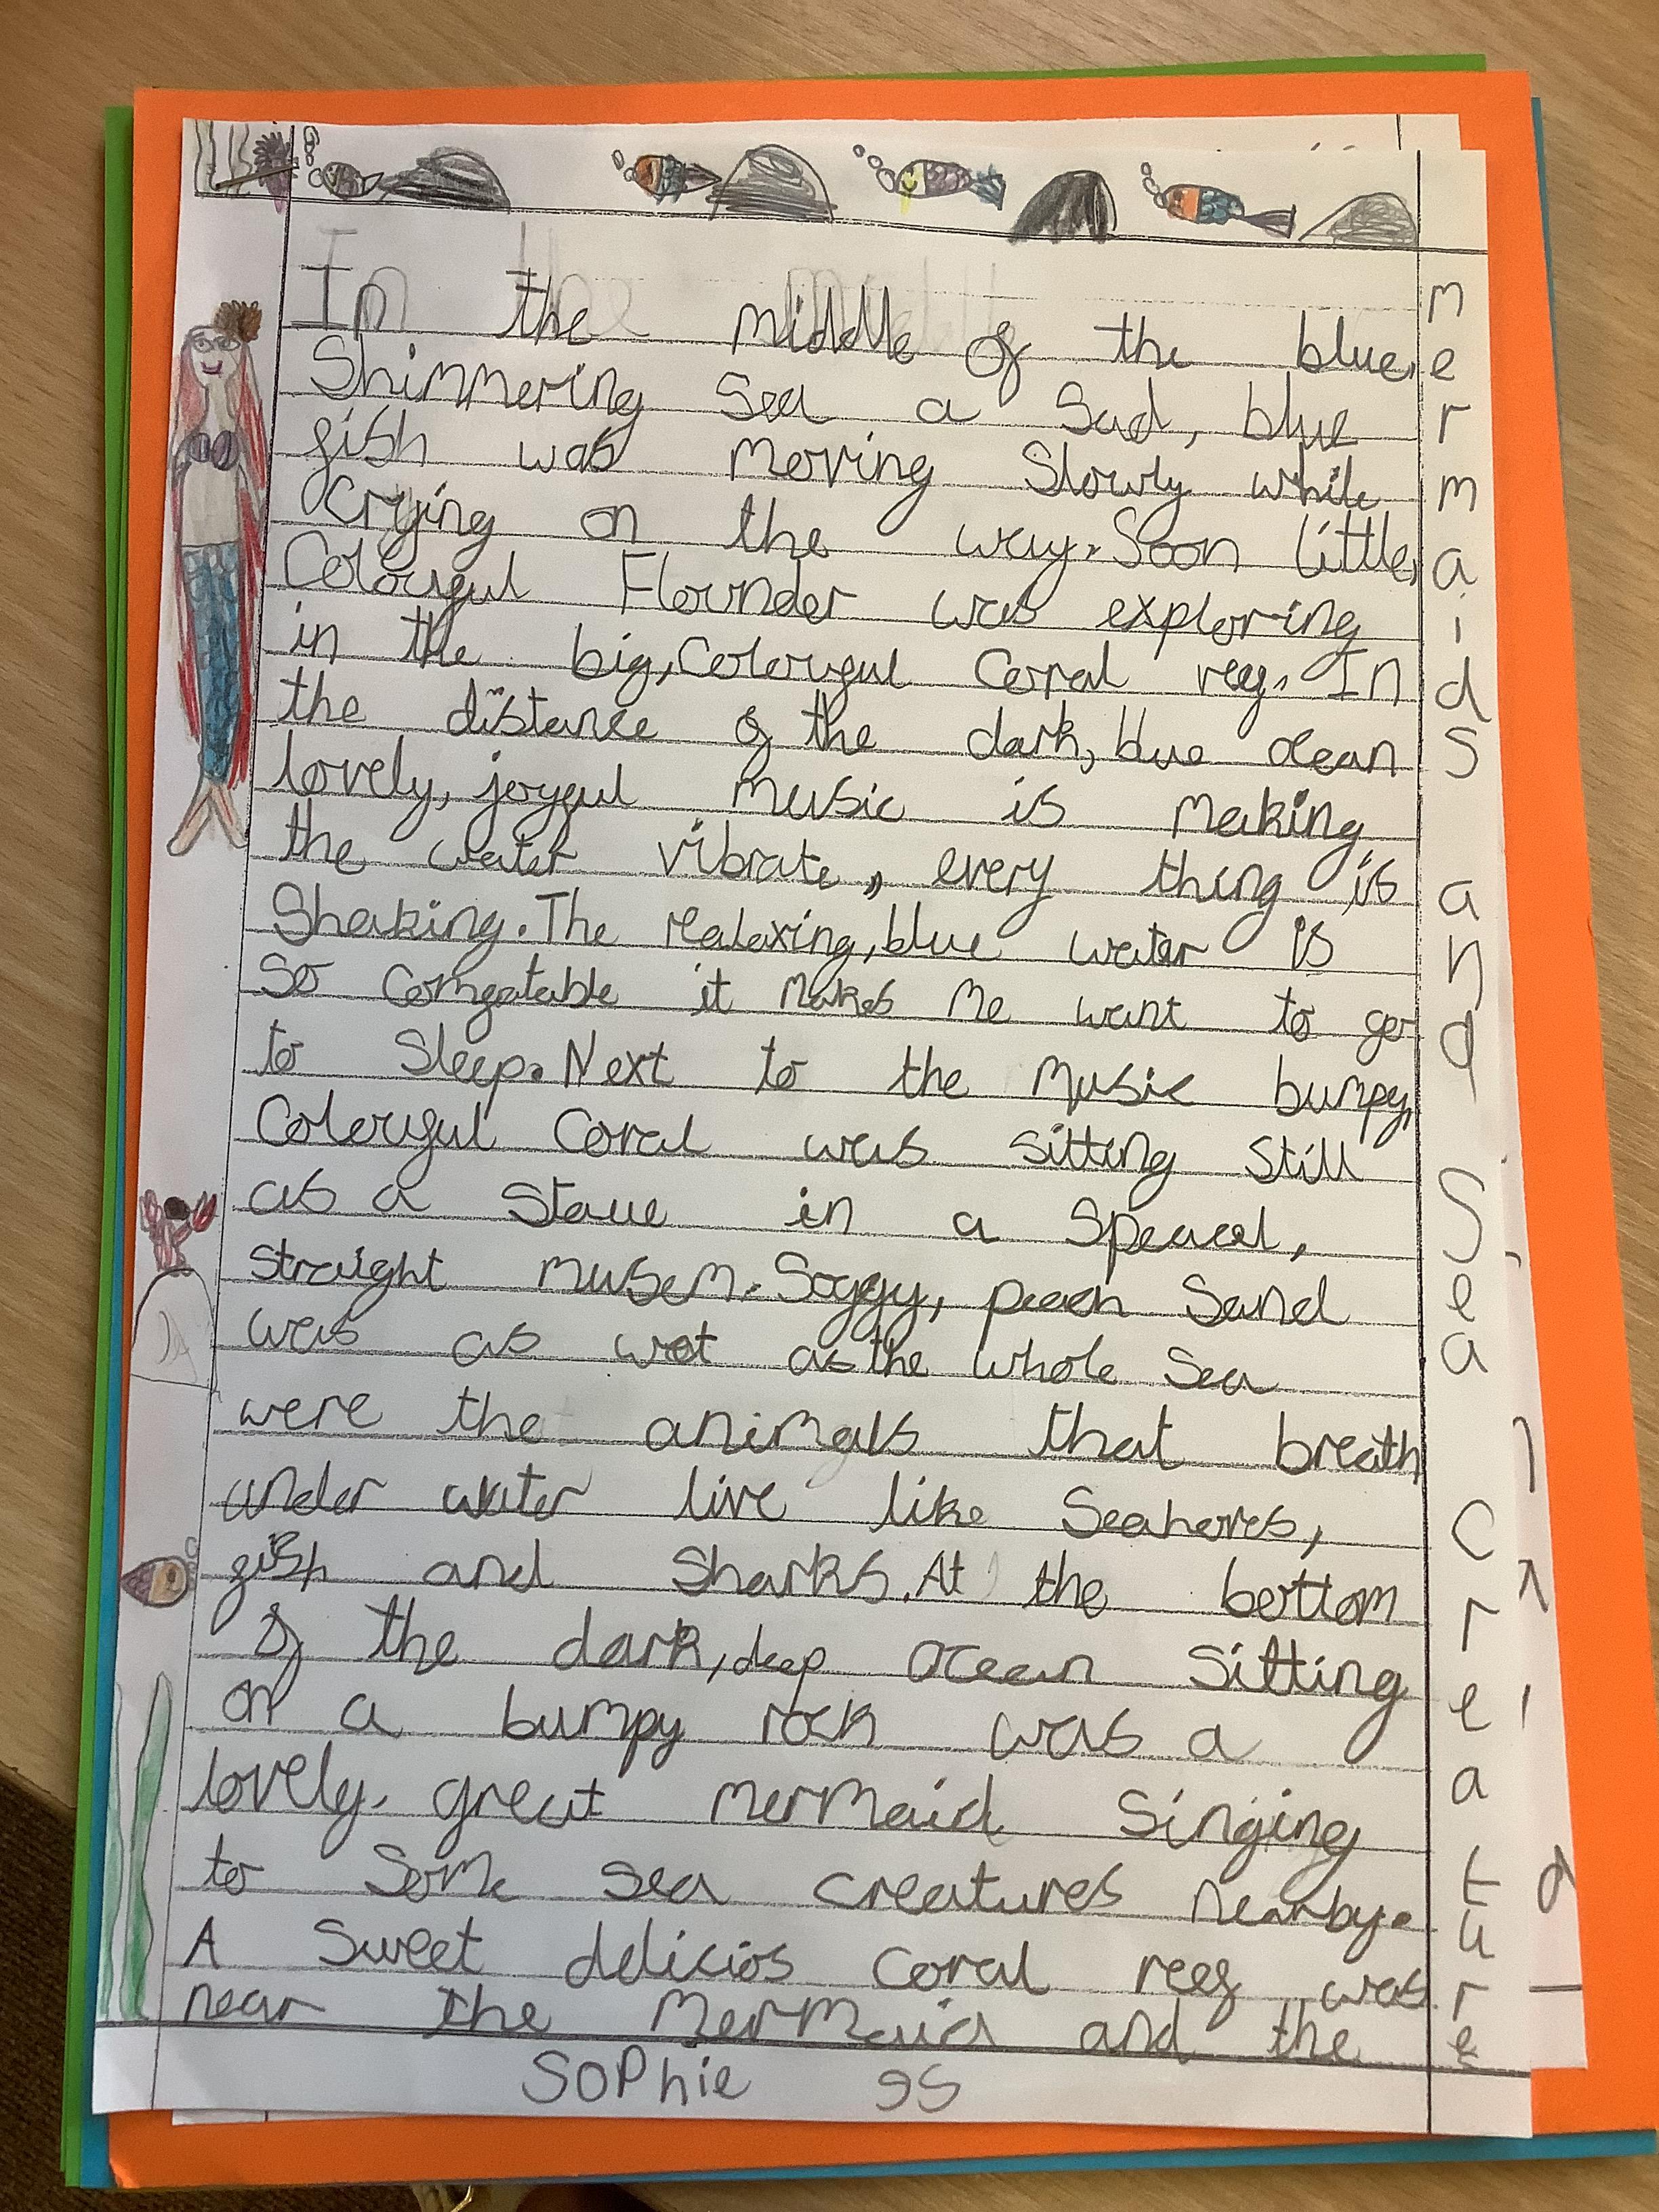 In the middle of the blue,
Shimmering Sea a Sad, blue
fish was moving Slowly while
Crying on the way. Soon little,
Colouful Flounder was exploring
in the big, Colouful Coral reef. In
the distance of the dark, blue ocean
lovely, joyful music is making
the water vibrate, every thing is
Shaking. The realaxing, blue water is
So Comfatable it makes me want to go
to Sleep. Next to the music bumpy,
Colouful Coral was sitting still
as a Staue in a Speacal,
straight musem. Soggy, Sand
was as wet as the whole Sea
were the animals that breath
under water live like Seahores,
fish and Sharks. At the bottom
of the dark, deep ocean sitting
on a bumpy rock was a
lovely, great mermaid singing
to Some sea creatures nearby.
A Sweet delicios Coral reef was
near the Mermaid and the
SoPhie
mermaids and Sea Creature